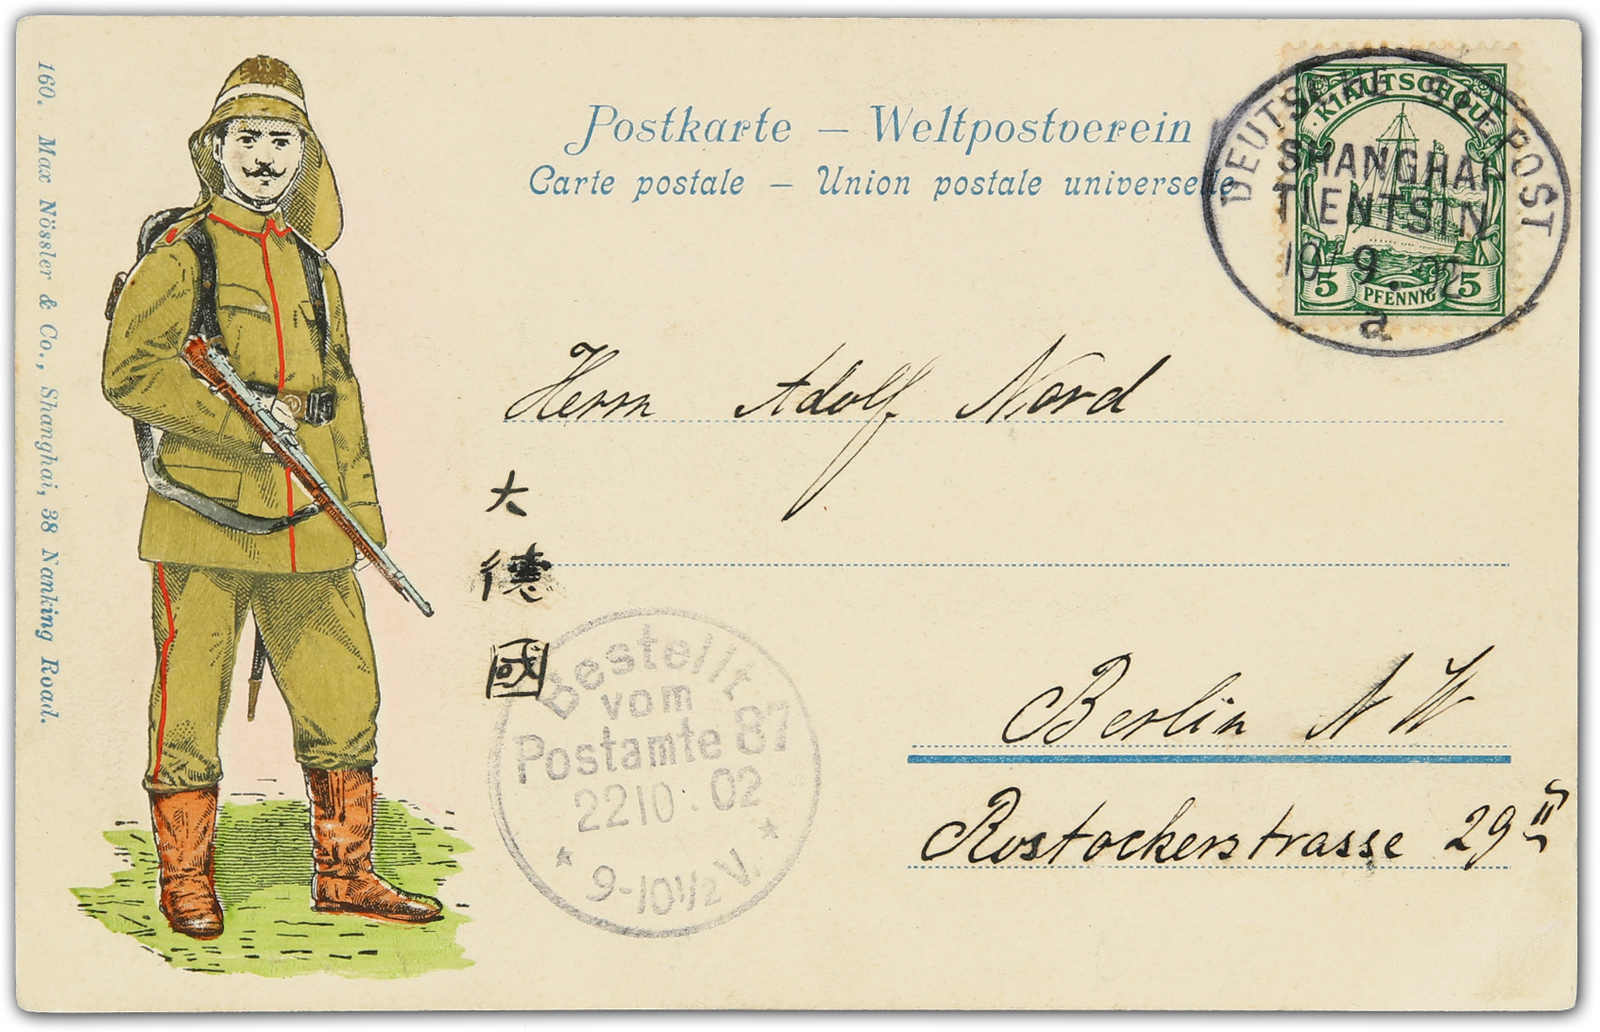 160. Max Nössler & Co., Shanghai, 38 Nanking Road.
Postkarte – Weltpostverein
Carte postale – Union postale universelle
KIAUTSCHOU
5 PFENNIG 5
DEUTSCHE SEEPOST
SHANGHAI
TIENTSIN
10/9.02
a
Herrn Adolf Nord
大
德
國
Berlin N W
Rostockerstrasse 29 II
Bestellt
vom
Postamte 87
2210.02
9-10½ V.